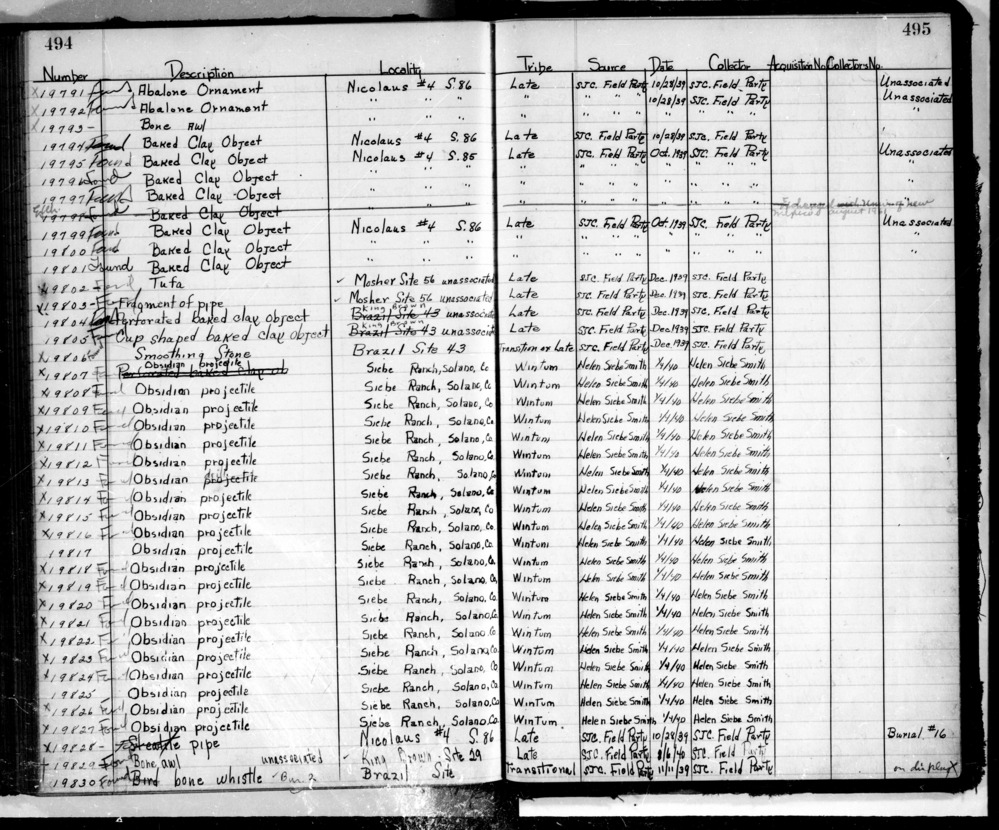 494
495
Number Description Locality Tribe Source Date Collector Acquisition No Collectors No.
X 19791 Found Abalone Ornament Nicolaus #4 S.86 Late SJC. Field Party 10/28/39 SJC. Field Party Unassociated
X 19792 Found Abalone Ornament " " " " " 10/28/39 SJC. Field Party Unassociated
X 19793 - Bone awl " " " " " " " "
19794 Found Baked Clay Object Nicolaus #4 S.86 Late SJC. Field Party 10/28/39 SJC. Field Party
19795 Found Baked Clay Object Nicolaus #4 S.85 Late SJC. Field Party Oct. 1939 SJC. Field Party Unassociated
19796 Found Baked Clay Object " " " " " " " "
19797 Found Baked Clay Object " " " " " " " "
19798 Found Baked Clay Object August
19799 Found Baked Clay Object Nicolaus #4 S.86 Late SJC. Field Party Oct. 1939 SJC. Field Party Unassociated
19800 Found Baked Clay Object " " " " " " " " "
19801 Found Baked Clay Object " " " " " " " "
X 19802 Found Tufa ✓ Mosher Site 56 unassociated Late SJC. Field Party Dec. 1939 SJC. Field Party
X 19803 - Fragment of pipe ✓ Mosher Site 56 unassociated Late SJC. Field Party Dec. 1939 SJC. Field Party
19804 Perforated baked clay object King Brown Brazil Site 43 unassociated Late SJC. Field Party Dec. 1939 SJC. Field Party
19805 Cup shaped baked clay object King Brown Brazil Site 43 unassociated Late SJC. Field Party Dec 1939 SJC. Field Party
X 19806 Smoothing Stone Brazil Site 43 Transition or Late SJC. Field Party Dec. 1939 SJC. Field Party
X 19807 Obsidian projectile Siebe Ranch, Solano, Co Wintum Helen Siebe Smith 1/4/40 Helen Siebe Smith
X 19808 Obsidian projectile Siebe Ranch, Solano, Co Wintum Helen Siebe Smith 1/4/40 Helen Siebe Smith
X 19809 Found Obsidian projectile Siebe Ranch, Solano, Co Wintum Helen Siebe Smith 1/4/40 Helen Siebe Smith
X 19810 Found Obsidian projectile Siebe Ranch, Solano, Co Wintum Helen Siebe Smith 1/4/40 Helen Siebe Smith
X 19811 Found Obsidian projectile Siebe Ranch, Solano, Co Wintum Helen Siebe Smith 1/4/40 Helen Siebe Smith
X 19812 Found Obsidian projectile Siebe Ranch, Solano, Co Wintum Helen Siebe Smith 1/4/40 Helen Siebe Smith
X 19813 Found Obsidian projectile Siebe Ranch, Solano, Co Wintum Helen Siebe Smith 1/4/40 Helen Siebe Smith
X 19814 Found Obsidian projectile Siebe Ranch, Solano, Co Wintum Helen Siebe Smith 1/4/40 Helen Siebe Smith
X 19815 Found Obsidian projectile Siebe Ranch, Solano, Co Wintum Helen Siebe Smith 1/4/40 Helen Siebe Smith
X 19816 Found Obsidian projectile Siebe Ranch, Solano, Co Wintum Helen Siebe Smith 1/4/40 Helen Siebe Smith
19817 Obsidian projectile Siebe Ranch, Solano, Co Wintum Helen Siebe Smith 1/4/40 Helen Siebe Smith
X 19818 Found Obsidian projectile Siebe Ranch, Solano, Co Wintum Helen Siebe Smith 1/4/40 Helen Siebe Smith
X 19819 Found Obsidian projectile Siebe Ranch, Solano, Co Wintum Helen Siebe Smith 1/4/40 Helen Siebe Smith
X 19820 Found Obsidian projectile Siebe Ranch, Solano, Co Wintum Helen Siebe Smith 1/4/40 Helen Siebe Smith
X 19821 Found Obsidian projectile Siebe Ranch, Solano, Co Wintum Helen Siebe Smith 1/4/40 Helen Siebe Smith
X 19822 Found Obsidian projectile Siebe Ranch, Solano, Co Wintum Helen Siebe Smith 1/4/40 Helen Siebe Smith
X 19823 Found Obsidian projectile Siebe Ranch, Solano, Co Wintum Helen Siebe Smith 1/4/40 Helen Siebe Smith
X 19824 Found Obsidian projectile Siebe Ranch, Solano, Co Wintum Helen Siebe Smith 1/4/40 Helen Siebe Smith
19825 Obsidian projectile Siebe Ranch, Solano, Co Wintum Helen Siebe Smith 1/4/40 Helen Siebe Smith
X 19826 Found Obsidian projectile Siebe Ranch, Solano, Co Wintum Helen Siebe Smith 1/4/40 Helen Siebe Smith
X 19827 Found Obsidian projectile Siebe Ranch, Solano, Co Wintum Helen Siebe Smith 1/4/40 Helen Siebe Smith
X 19828 - Steatite pipe Nicolaus #4 S.86 Late SJC. Field Party 10/28/39 SJC. Field Party Burial #16
19829 Found Bone awl unassociated ✓ King Brown Site 29 Late SJC. Field Party 1/6/40 SJC. Field Party
19830 Found Bird bone whistle Bur. 2 Brazil Site Transitional SJC. Field Party 11/11/39 SJC. Field Party on display X